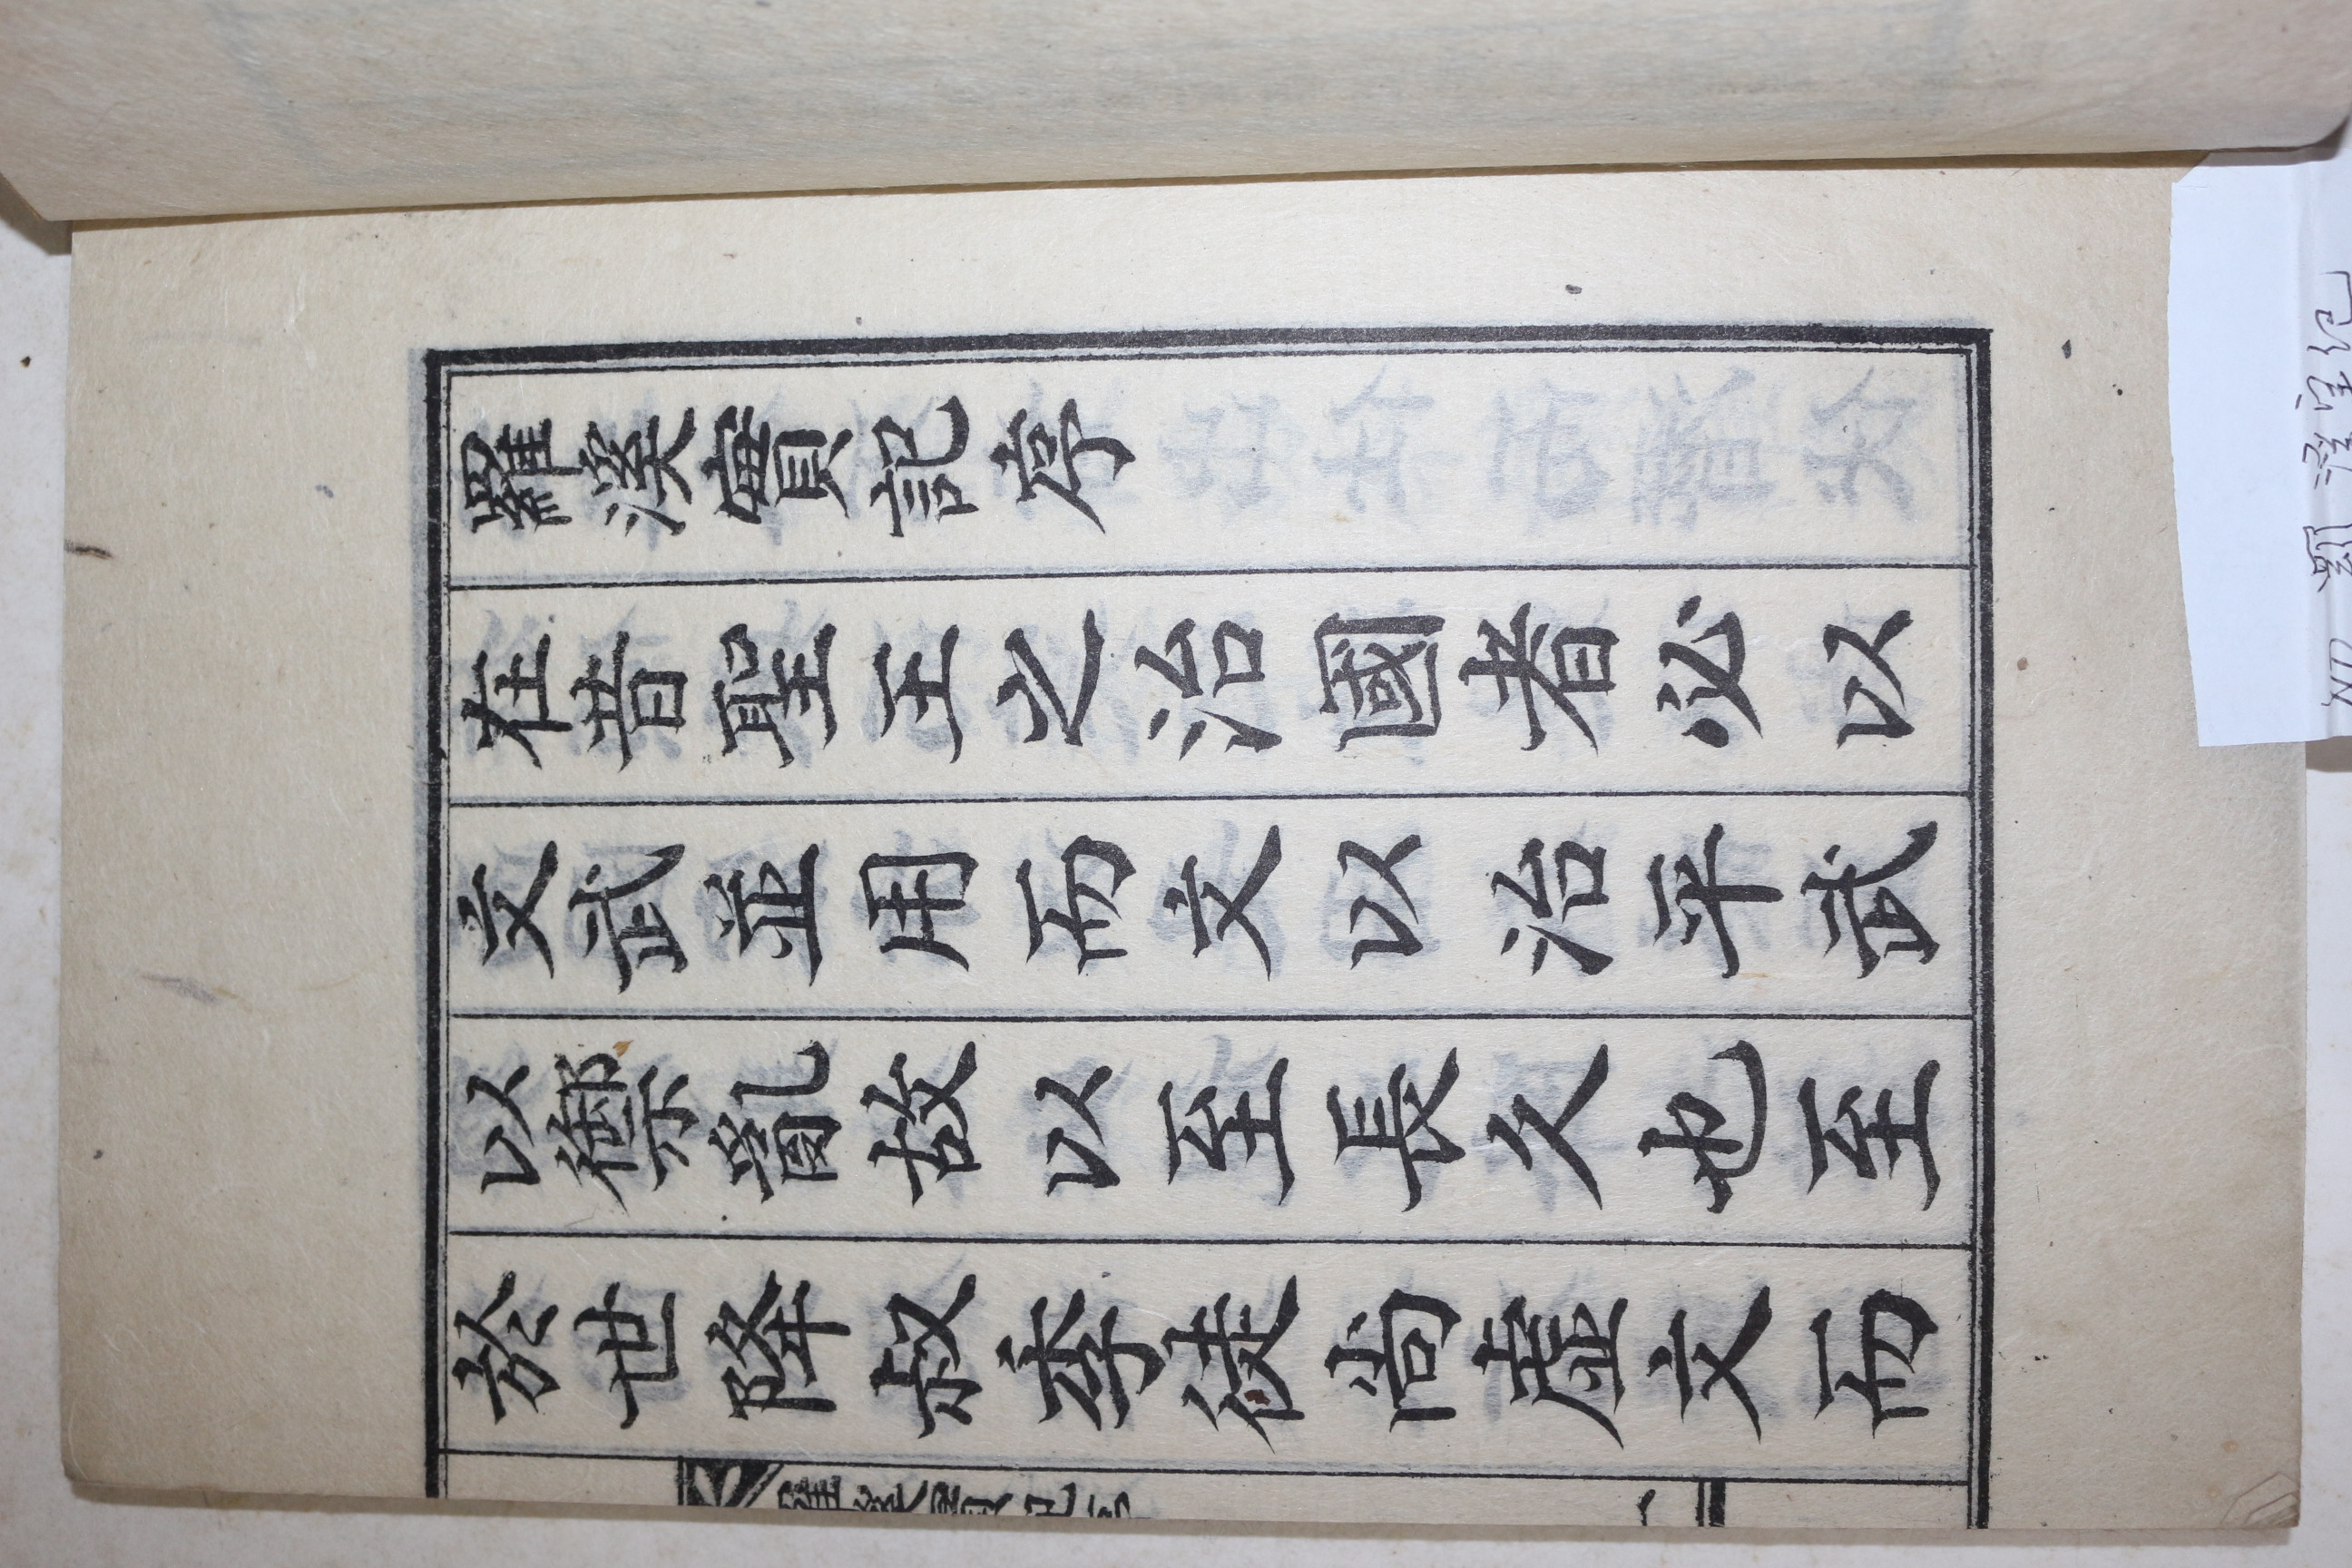 羅溪實記序
在昔聖王之治國者必以
文武並用而文以治平武
以禦亂故以至長久也至
於世降叔季徒尚虛文而